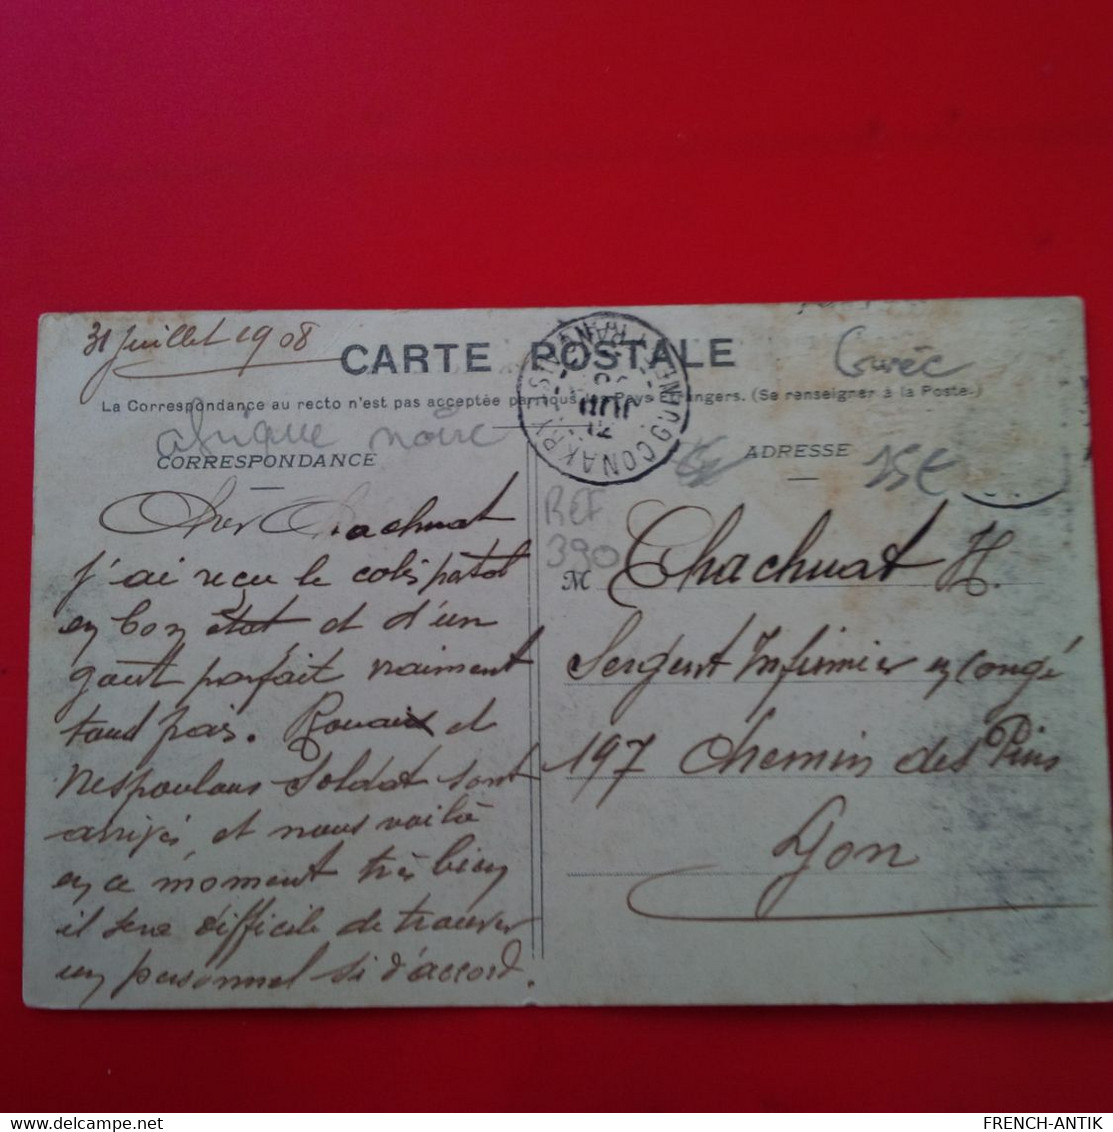 31 Juillet 1908
CARTE POSTALE
Guiée
La Correspondance au recto n'est pas acceptée par tous les Pays étrangers. (Se renseigner à la Poste.)
afrique noire
CORRESPONDANCE
ADRESSE
15€
CONAKRY
REF
390
Cher Chachuat
j'ai reçu le colis patat
en bon état et d'un
gout parfait vraiment
tout pais. et
Nespoulous Soldat sont
arrivés, et nous voilà
en ce moment très bien
il sera difficile de trouver
un personnel si d'accord.
M Chachuat H.
Sergent Infirmier en congé
197 Chemin des Pins
Lyon
FRENCH-ANTIK